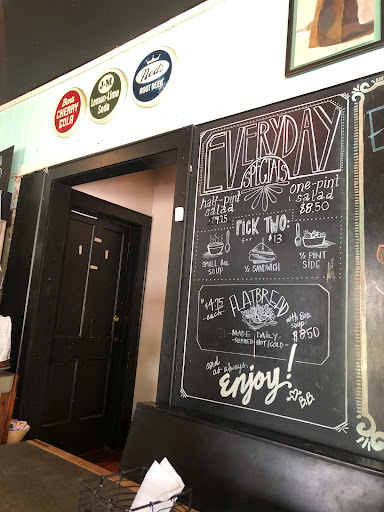 Bob's
CHERRY
COLA
J&M
Lemon-Lime
Soda
Ned's
ROOT BEER
EVERYDAY
SPECIALS
half-pint
salad
$4.25
one-pint
salad
$8.50
PICK TWO:
FOR $13
SMALL 8oz
SOUP
½ SANDWICH
½ PINT
SIDE
FLATBREAD
$4.75
-each-
with 8oz
soup
$8.50
MADE DAILY
-SERVED HOT/COLD-
and
as always,
Enjoy!
BB